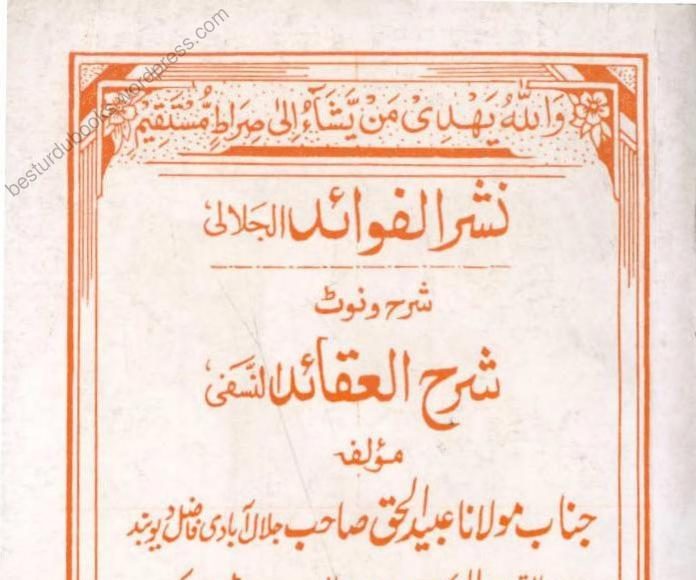 besturdubooks.wordpress.com
وَاللّٰهُ يَهْدِىْ مَنْ يَّشَآءُ اِلىٰ صِرَاطٍ مُّسْتَقِيْمٍ
نشر الفوائد الجلالی
شرح و نوٹ
شرح العقائد النسفی
مؤلفہ
جناب مولانا عبید الحق صاحب جلال آبادی فاضل دیوبند